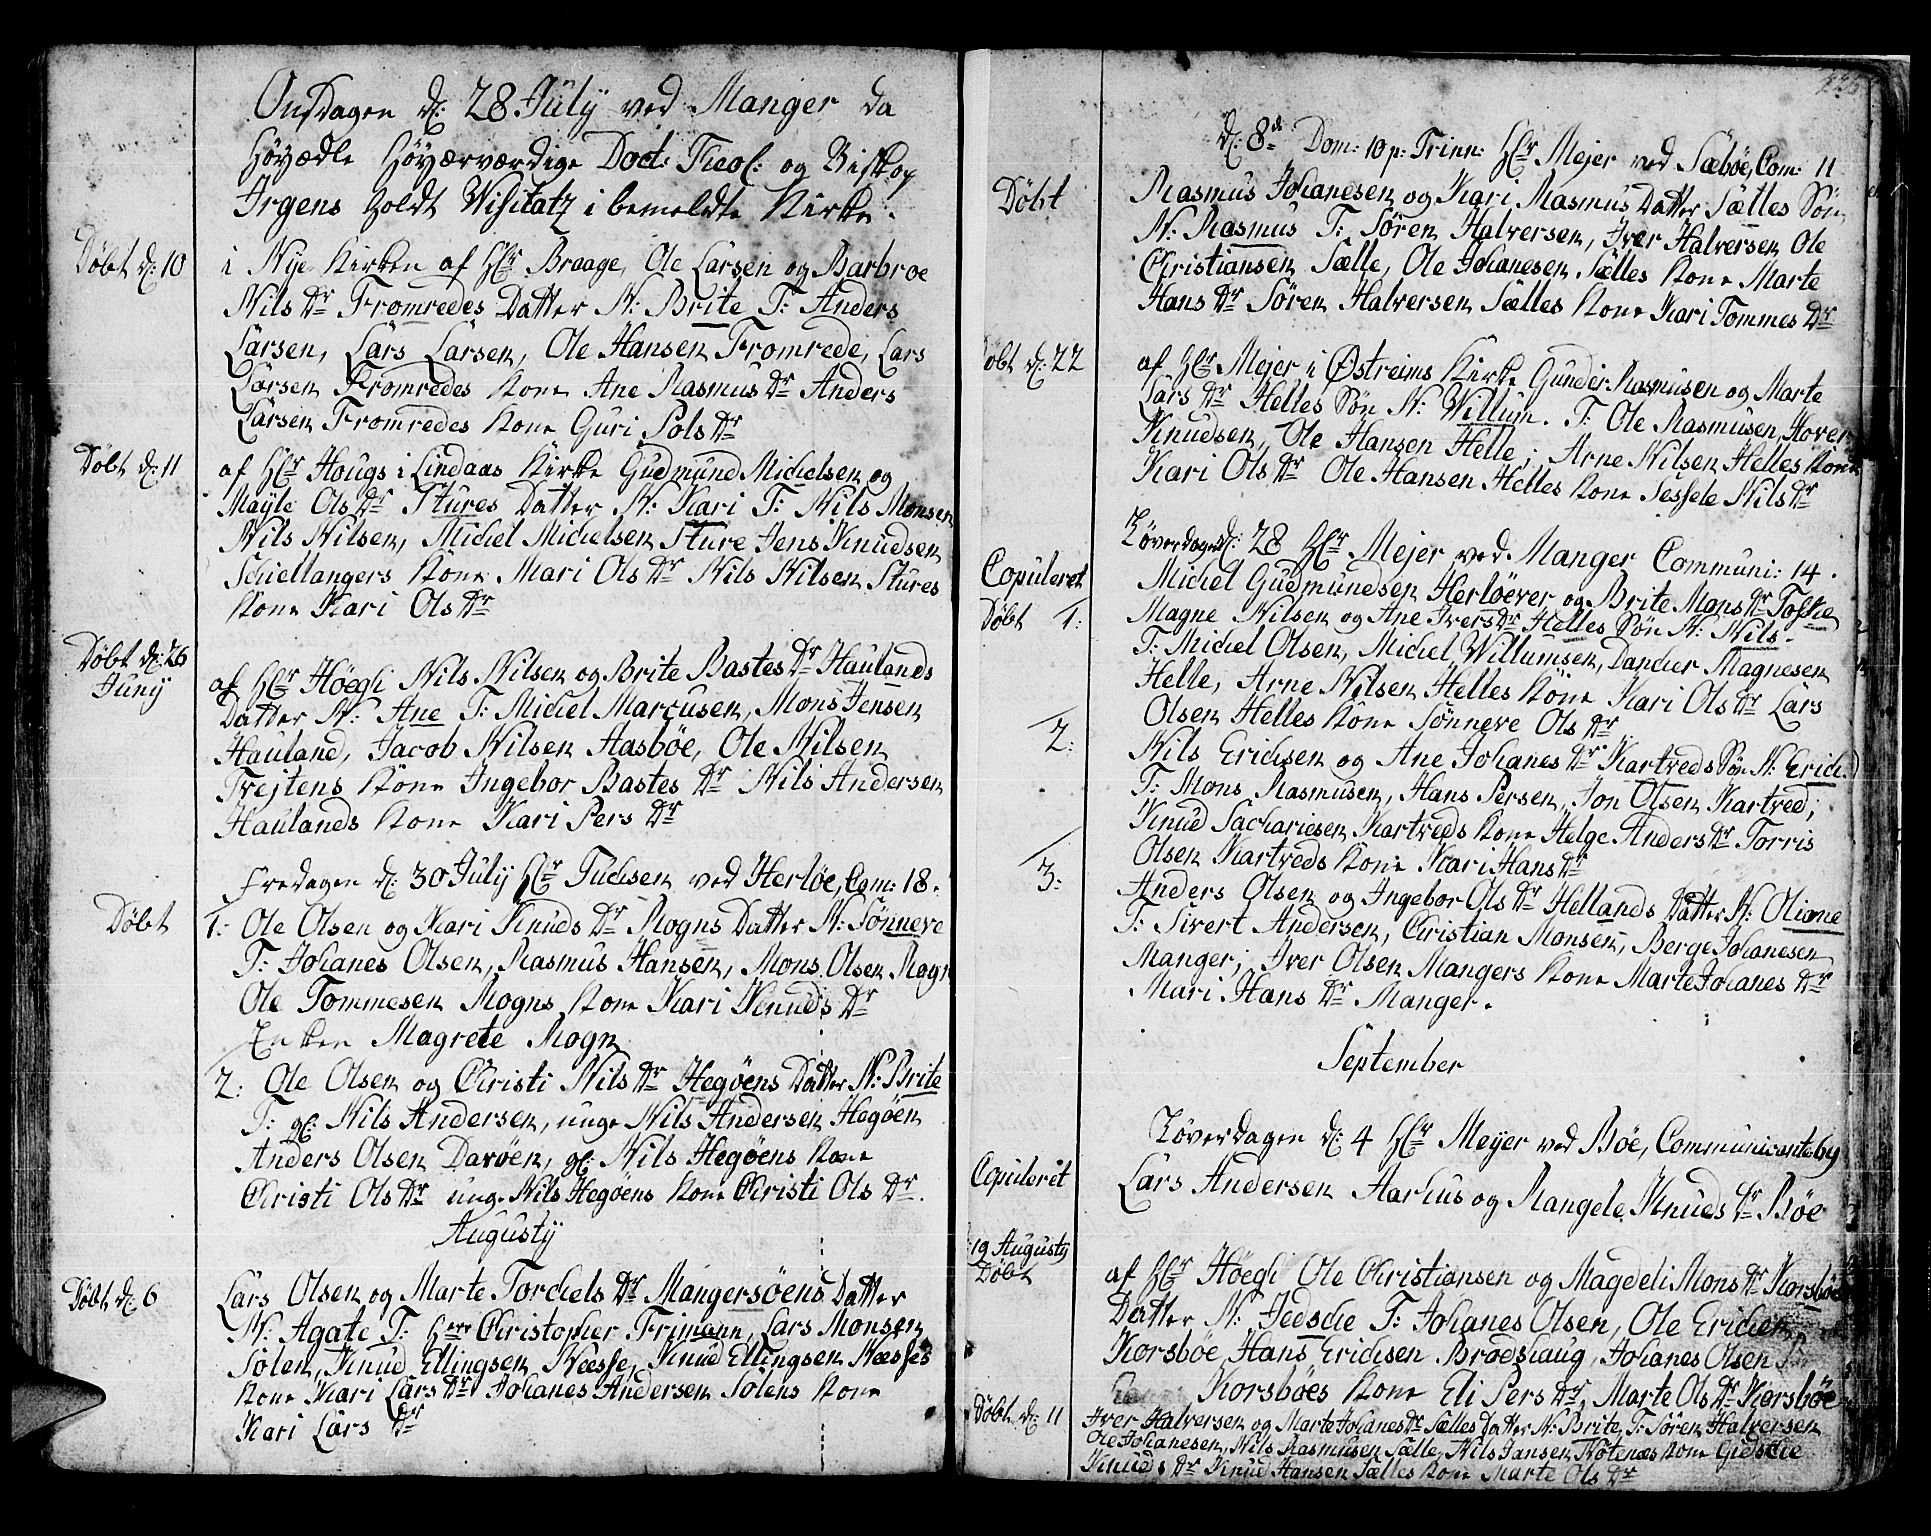 Onsdagen d: 28 July ved Manger da
Höyædle Höyærværdige Doct: Theol: og Biskop
Irgens holdt Visitatz i bemeldte Kirke.
Döbt d: 10
i Nye Kirken af Hr Braage, Ole Larsen og Barbroe
Nils Dr Fromredes Datter N: Brite T: Anders
Larsen, Lars Larsen, Ole Hansen Fromrede, Lars
Larsen Fromredes Kone Ane Rasmus Dr Anders
Larsen Fromredes Kone Guri Pols Dr
Döbt d: 11
af Hr Hougs i Lindaas Kirke Gudmund Michelsen og
Mayle Ols Dr Stures Datter N: Kari T: Nils Monsen
Nils Nilsen, Michel Michelsen Sture Jens Knudsen
Schiellangers Kone Mari Ols Dr Nils Nilsen Stures
Kone Kari Ols Dr
Döbt d: 26
Juny
af Hr Höegh Nils Nilsen og Brite Bastes Dr Haulands
Datter N: Ane T: Michel Marcusen, Mons Jensen
Hauland, Jacob Nilsen Aasböe, Ole Nilsen
Trejtens Kone Ingebor Bastes Dr Nils Andersen
Haulands Kone Kari Pers Dr
Fredagen d: 30 July Hr Tuchsen ved Herlöe, Com: 18.
Döbt
1: Ole Olsen og Kari Knuds Dr Rogns Datter N: Sönneve
T: Johanes Olsen, Rasmus Hansen, Mons Olsen Rogn
Ole Tommesen Rogns Kone Kari Knuds Dr
Enken Magrete Rogn
2: Ole Olsen og Christi Nils Dr Hegöens Datter N: Brite
T: gl: Nils Andersen, unge Nils Andersen Hegöen
Anders Olsen Davöen, gl: Nils Hegöens Kone
Christi Ols Dr unge Nils Hegöens Kone Christi Ols Dr.
Augusty
Döbt d: 6
Lars Olsen og Marte Torchels Dr Mangersöens Datter
N: Agate T: Herr Christopher Frimann, Lars Monsen
Solen, Knud Ellingsen Næsse, Knud Ellingsen Næsses
Kone Kari Lars Dr Johanes Andersen Solens Kone
Kari Lars Dr
d: 8de Dom: 10 p: Trinn: Hr Mejer ved Sæböe, Com: 11
Döbt
Rasmus Johanesen og Kari Rasmus Datter Sælles Sön
N: Rasmus T: Sören Halversen, Iver Halversen Ole
Christiansen Sælle, Ole Johanesen Sælles Kone Marte
Hans Dr Sören Halversen Sælles Kone Kari Tommes Dr
Döbt d: 22
af Hr Mejer i Östreims Kirke Gunder Rasmusen og Marte
Lars Dr Helles Sön N: Willum. T: Ole Rasmusen, Hover
Knudsen, Ole Hansen Helle, Arne Nilsen Helles Kone
Kari Ols Dr Ole Hansen Helles Kone Sessele Nils Dr
Löverdagen d: 28 Hr Mejer ved Manger Communi: 14.
Copuleret
Michel Gudmundsen Herlöever og Brite Mons Dr Toskie
Döbt 1:
Magne Nilsen og Ane Ivers Dr Helles Sön N: Nils.
T: Michel Olsen, Michel Willumsen, Dancher Magnesen
Helle, Arne Nilsen Helles Kone Kari Ols Dr Lars
Olsen Helles Kone Sönneve Ols Dr
2:
Nils Erichsen og Ane Johanes Dr Kartveds Sön N: Erich
T: Mons Rasmusen, Hans Persen, Jon Olsen Kartved,
Knud Sachariesen Kartveds Kone Helge Anders Dr Torris
Olsen Kartveds Kone Kari Hans Dr
3:
Anders Olsen og Ingebor Ols Dr Hellands Datter N: Oliane
T: Sivert Andersen, Christian Monsen, Berge Johanesen
Manger, Iver Olsen Mangers Kone Marte Johanes Dr
Mari Hans Dr Manger.
September
Löverdagen d: 4 Hr Meyer ved Böe, Communicantes 69
Copuleret
Lars Andersen Aarhus og Rangele Knuds Dr Böe
19 Augusty
Döbt
af Hr Höegh Ole Christiansen og Magdeli Mons Dr Korsböes
Datter N: Jedsche T: Johanes Olsen, Ole Erichsen
Korsböe, Hans Erichsen Brodshaug, Johanes Olsen
Korsböes Kone Eli Pers Dr, Marte Ols Dr Korsböe
Döbt d: 11
Iver Halversen og Marte Johanes Dr Sælles Datter N: Brite, T: Sören Halversen
Ole Johanesen, Nils Rasmusen Sælle, Nils Jansen Nötenæs Kone Gidsche
Knuds Dr Knud Hansen Sælles Kone Marte Ols Dr